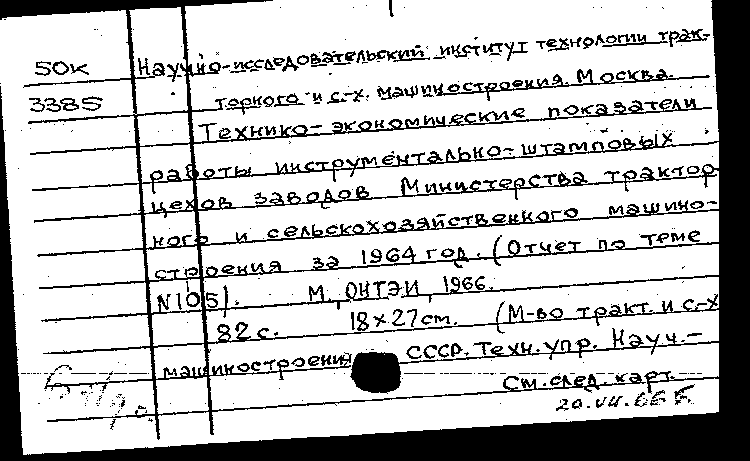 50К Научно-исследовательский институт технологии трак-
3385 торного и с.-х. машиностроения. Москва.
Технико-экономические показатели
работы инструментально-штамповых
цехов заводов Министерства трактор
ного и сельскохозяйственного машино-
строения за 1964 год. (Отчет по теме
N105). М., ОНТЭИ, 1966.
82 с. 18×27cm. (М-во тракт. и с.-х
машиностроения СССР. Техн. упр. Науч.-
См. след. карт.
20.VII.66 Б.